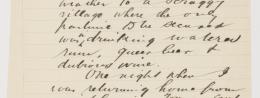 weather to a scraggy
village where the only
pastime to be
was drinking watered
rum, queer beer &
dubious wine.
One night when I
was returning home from